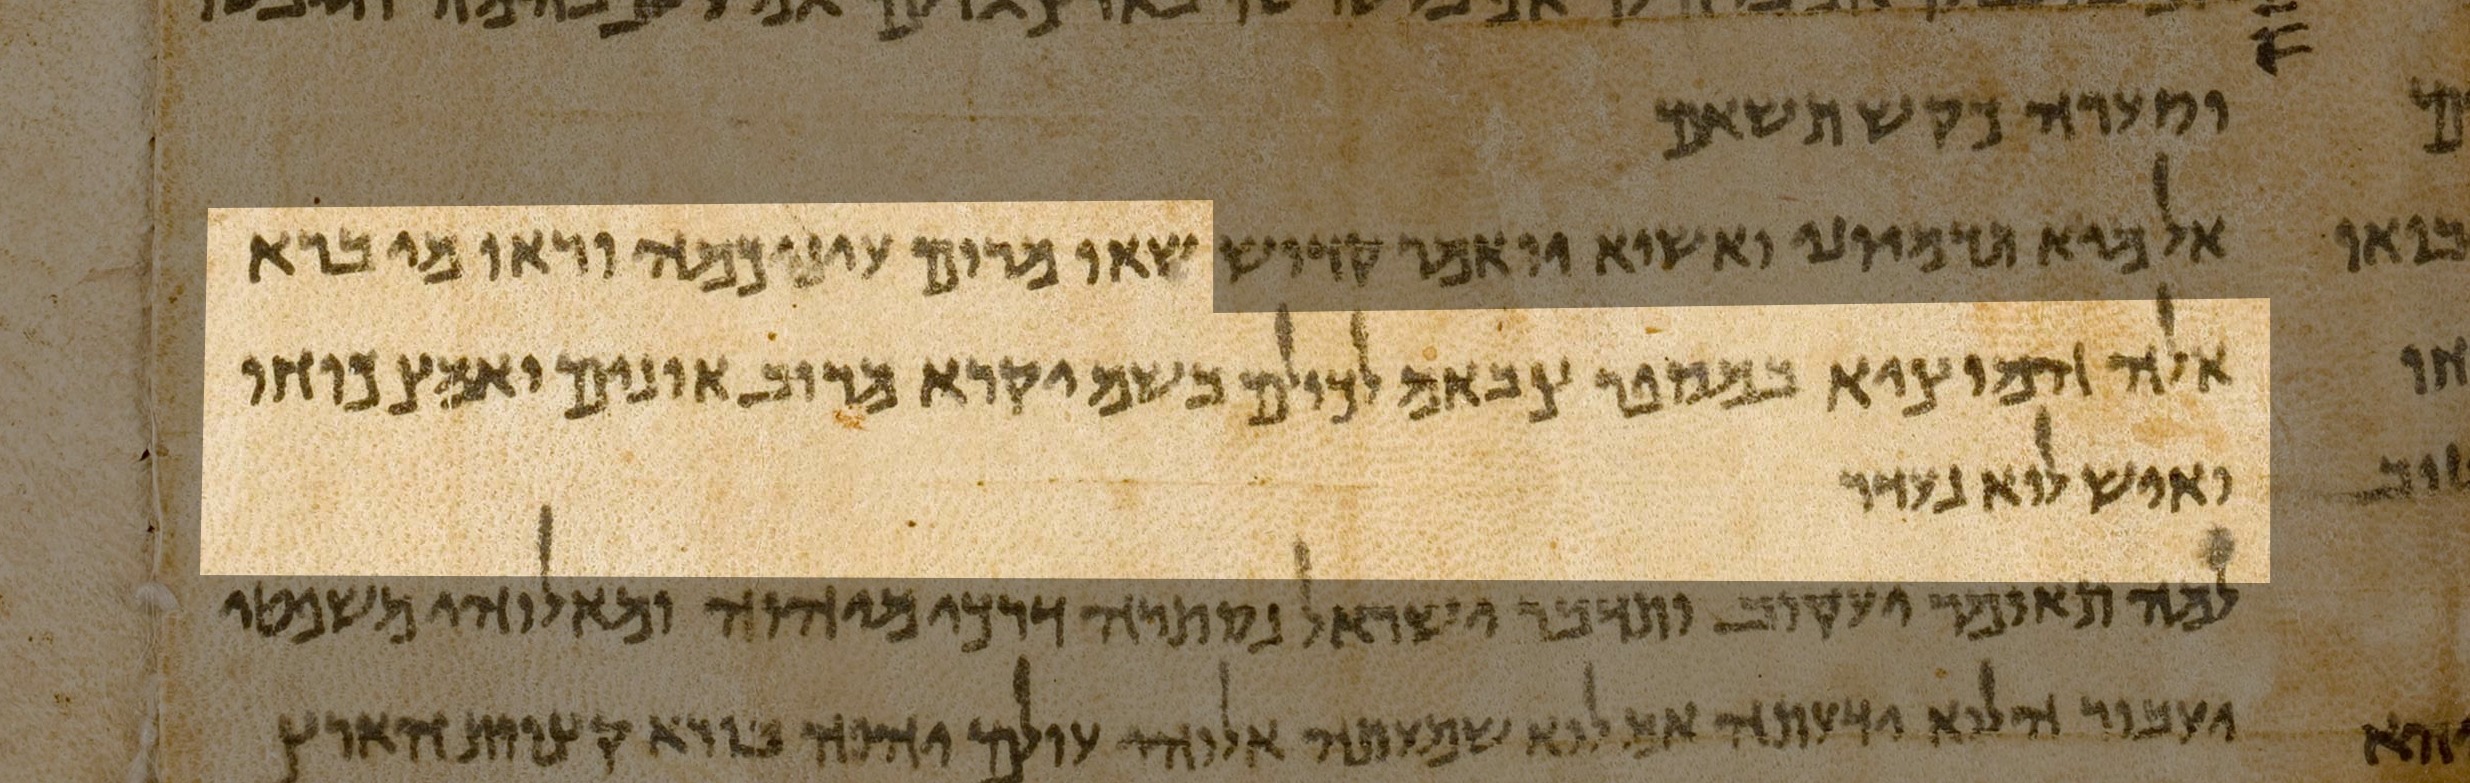 וסערה כקש תשאם
אל מיא תדמיוני ואשוא יואמר קדוש שאו מרום עיניכמה וראו מי ברא
אלה המוציא במספר צבאמ לכולם בשמ יקרא מרוב אונים ואמץ כוחו
ואיש לוא נעדר
למה תאומר יעקוב ותדבר ישראל נסתרה דרכי מיהוה ומאלוהי משפטי
יעבור הלוא ידעתה אמ לוא שמעתה אלוהי עולם יהוה בורא קצוות הארץ